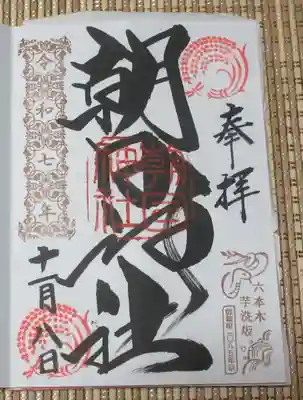 奉拝
六本木
芋洗坂。
朝日神社
朝日
神社
令和七年
十一月八日